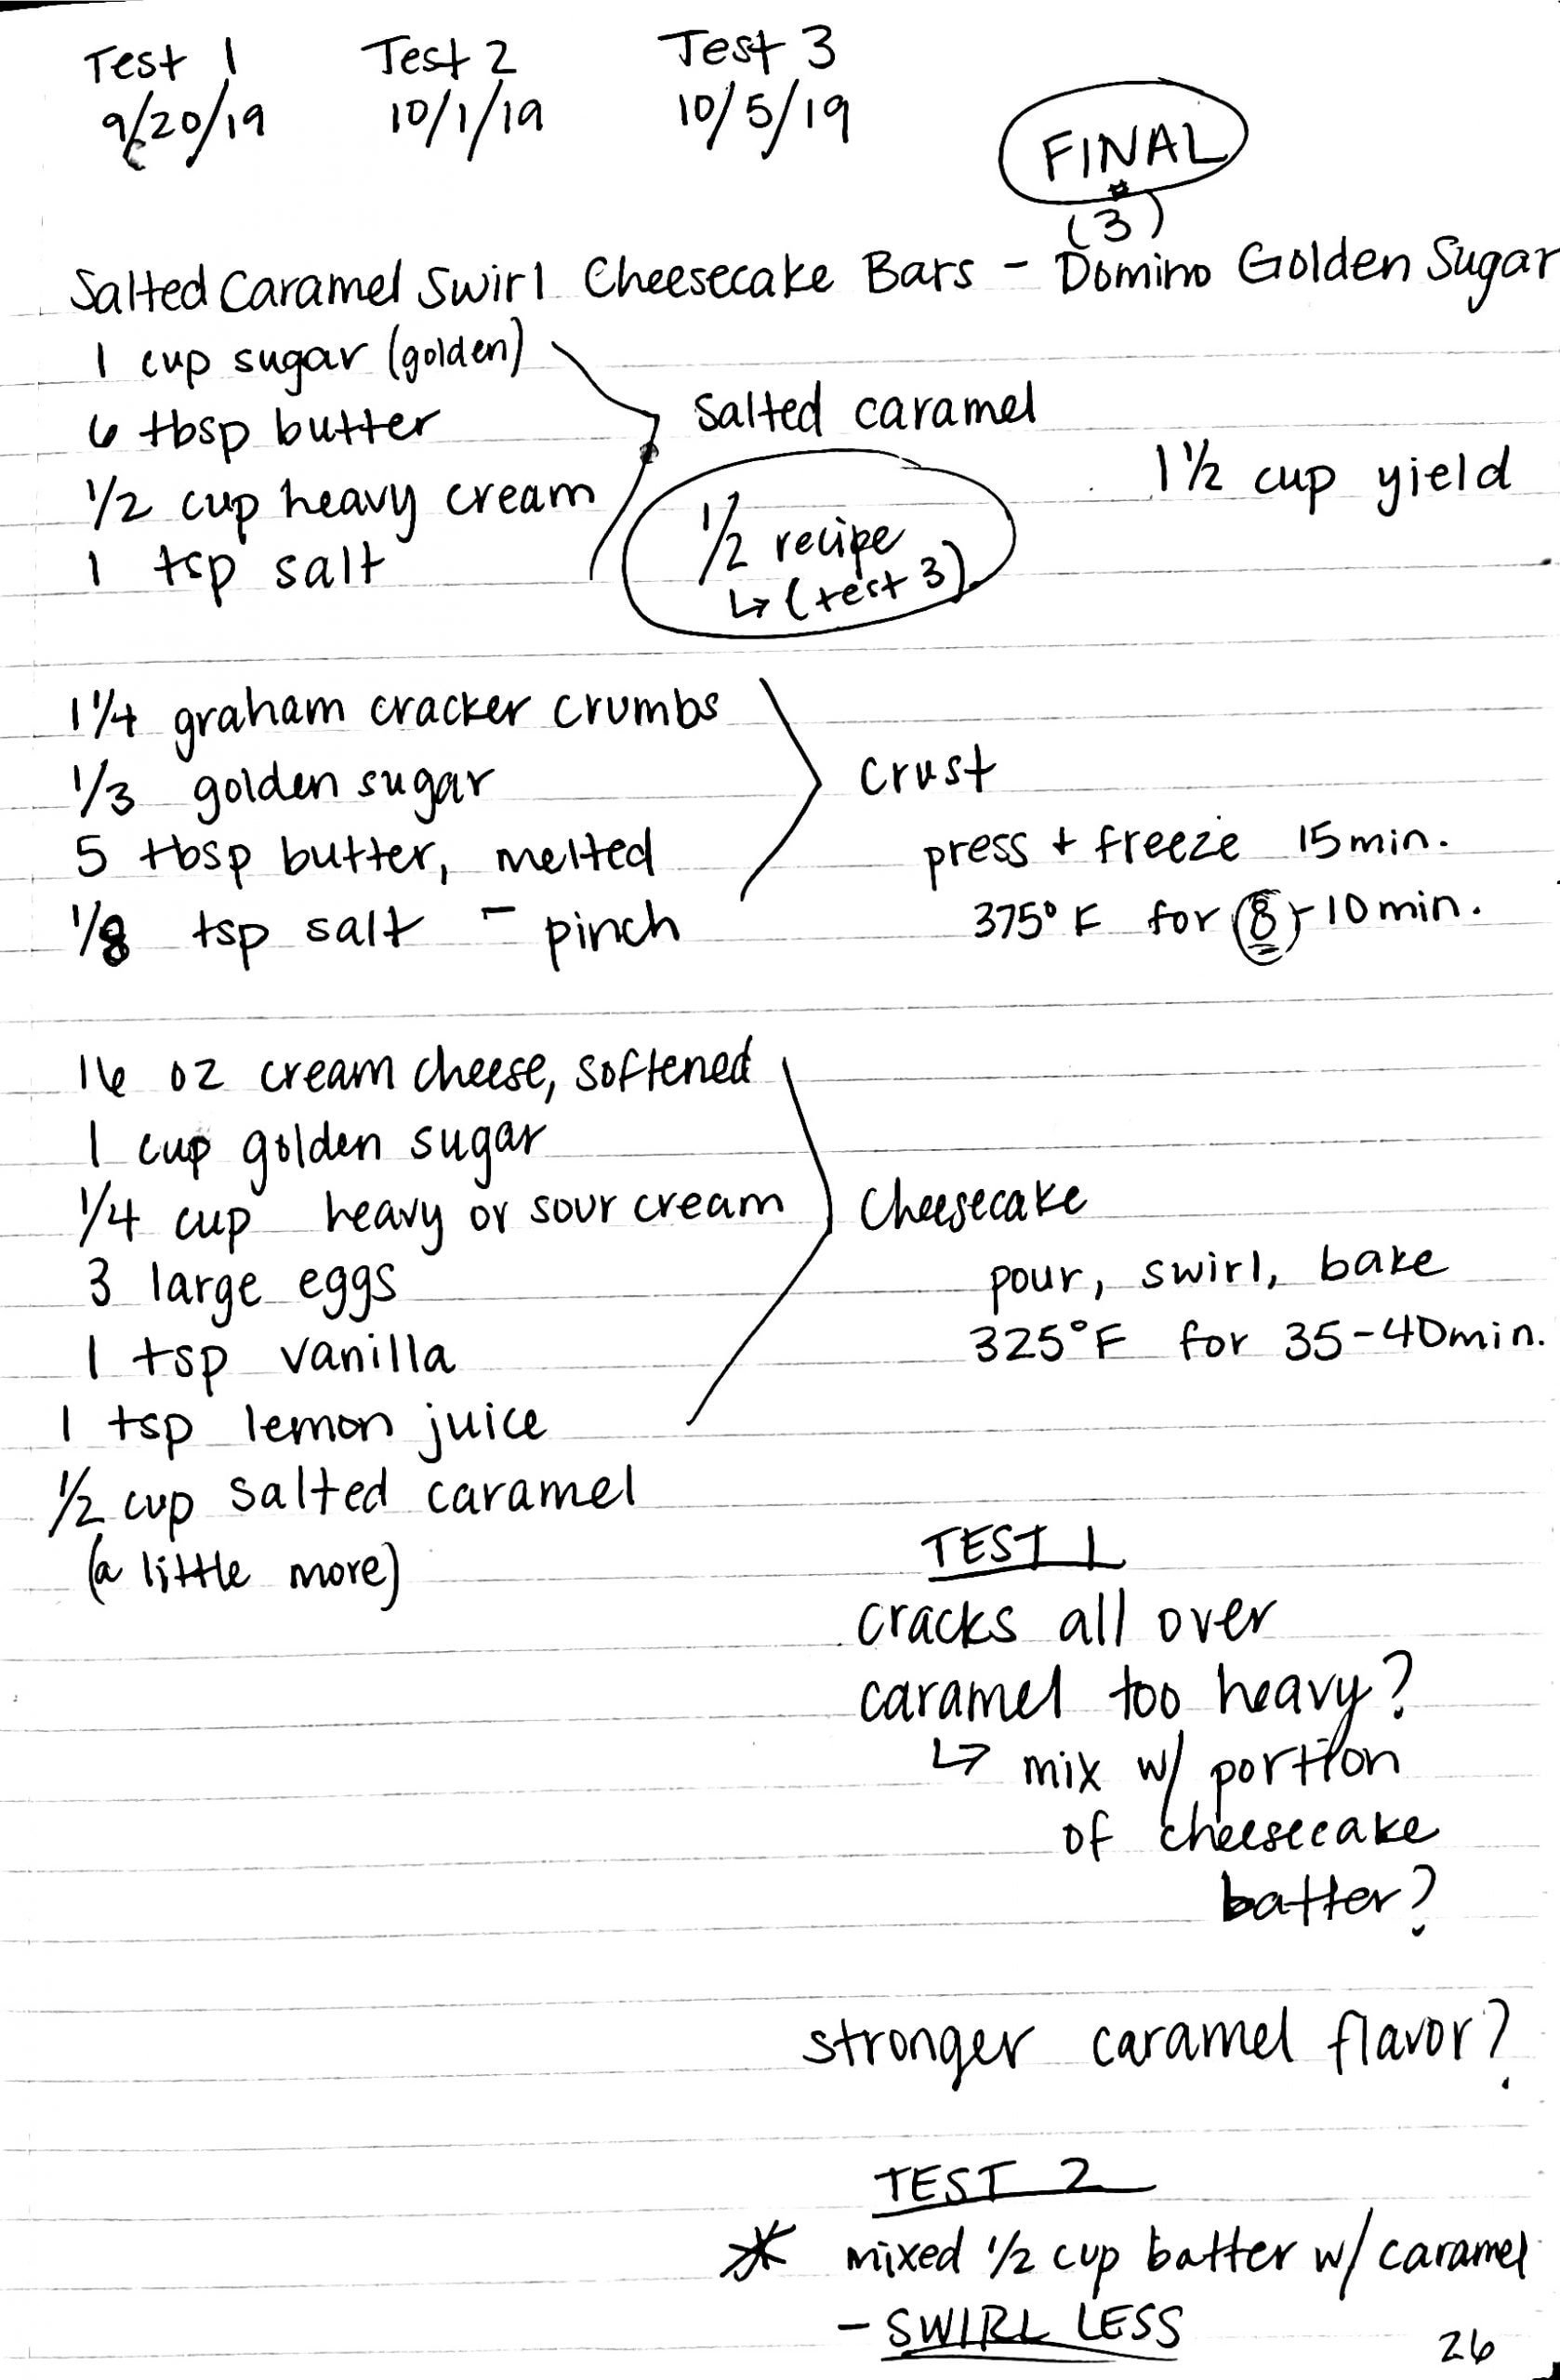 Test 1 Test 2 Test 3
9/20/19 10/1/19 10/5/19
FINAL
(3)
Salted Caramel Swirl Cheesecake Bars - Domino Golden Sugar
1 cup sugar (golden)
6 tbsp butter
1/2 cup heavy cream
1 tsp salt
Salted caramel
1 1/2 cup yield
1/2 recipe
↳ (test 3)
1 1/4 graham cracker crumbs
1/3 golden sugar
5 tbsp butter, melted
1/8 tsp salt - pinch
Crust
press + freeze 15 min.
375°F for 8-10 min.
16 oz cream cheese, softened
1 cup golden sugar
1/4 cup heavy or sour cream
3 large eggs
1 tsp vanilla
1 tsp lemon juice
1/2 cup salted caramel
(a little more)
Cheesecake
pour, swirl, bake
325°F for 35-40 min.
TEST 1
cracks all over
caramel too heavy?
↳ mix w/ portion
of cheesecake
batter?
stronger caramel flavor?
TEST 2
* mixed 1/2 cup batter w/ caramel
- SWIRL LESS
26